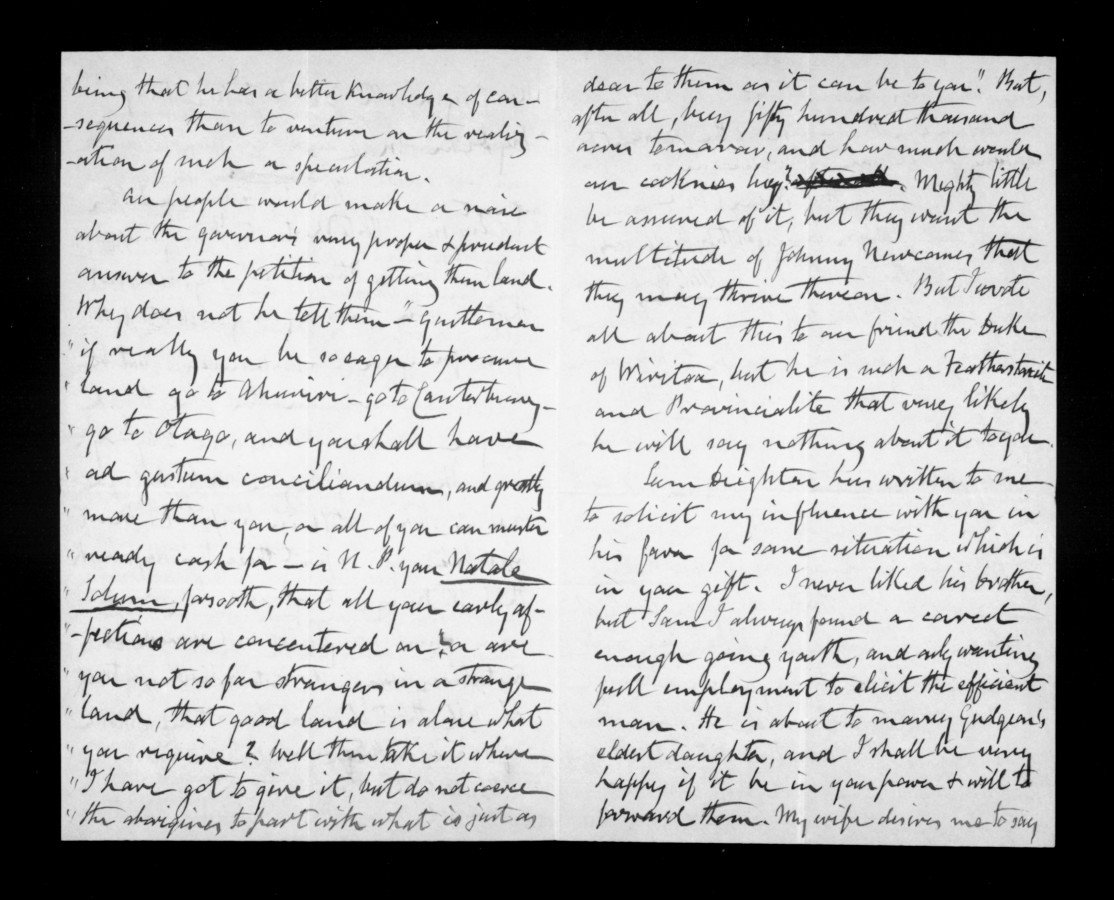 being that he has a better knowledge of con-
-sequences than to venture on the realiz-
-ation of such a speculation.
Our people would make a noise
about the governor's very proper & prudent
answer to the petition of getting them land.
Why does not he tell them – "Gentlemen
" if really you be so eager to procure
" land go to Ahuriri – go to Canterbury –
" go to Otago, and you shall have
" ad gustum conciliandum, and greatly
" more than you, or all of you can muster
" ready cash for – is N. P. your Natale
" Solum, forsooth, that all your early af-
"-fections are concentered on? or are
" you not so far strangers in a strange
" land, that good land is alone what
" you require? Well then take it where
" I have got to give it, but do not coerce
" the aborigines to part with what is just as
dear to them as it can be to you". But,
after all, buy fifty hundred thousand
acres tomorrow, and how much would
our cocknies buy? Mighty little
be assured of it, but they want the
multitude of Johnny Newcomes that
they may thrive thereon. But I wrote
all about this to our friend the Duke
of Wiritoa, but he is such a Featherstonite
and Provincialite that very likely
he will say nothing about it to you.
Sam Deighton has written to me
to solicit my influence with you in
his favor for some situation which is
in your gift. I never liked his brother,
but Sam I always found a correct
enough going youth, and only wanting
full employment to elicit the efficient
man. He is about to marry Gudgeon's
eldest daughter, and I shall be very
happy if it be in your power & will to
forward them. My wife desires me to say